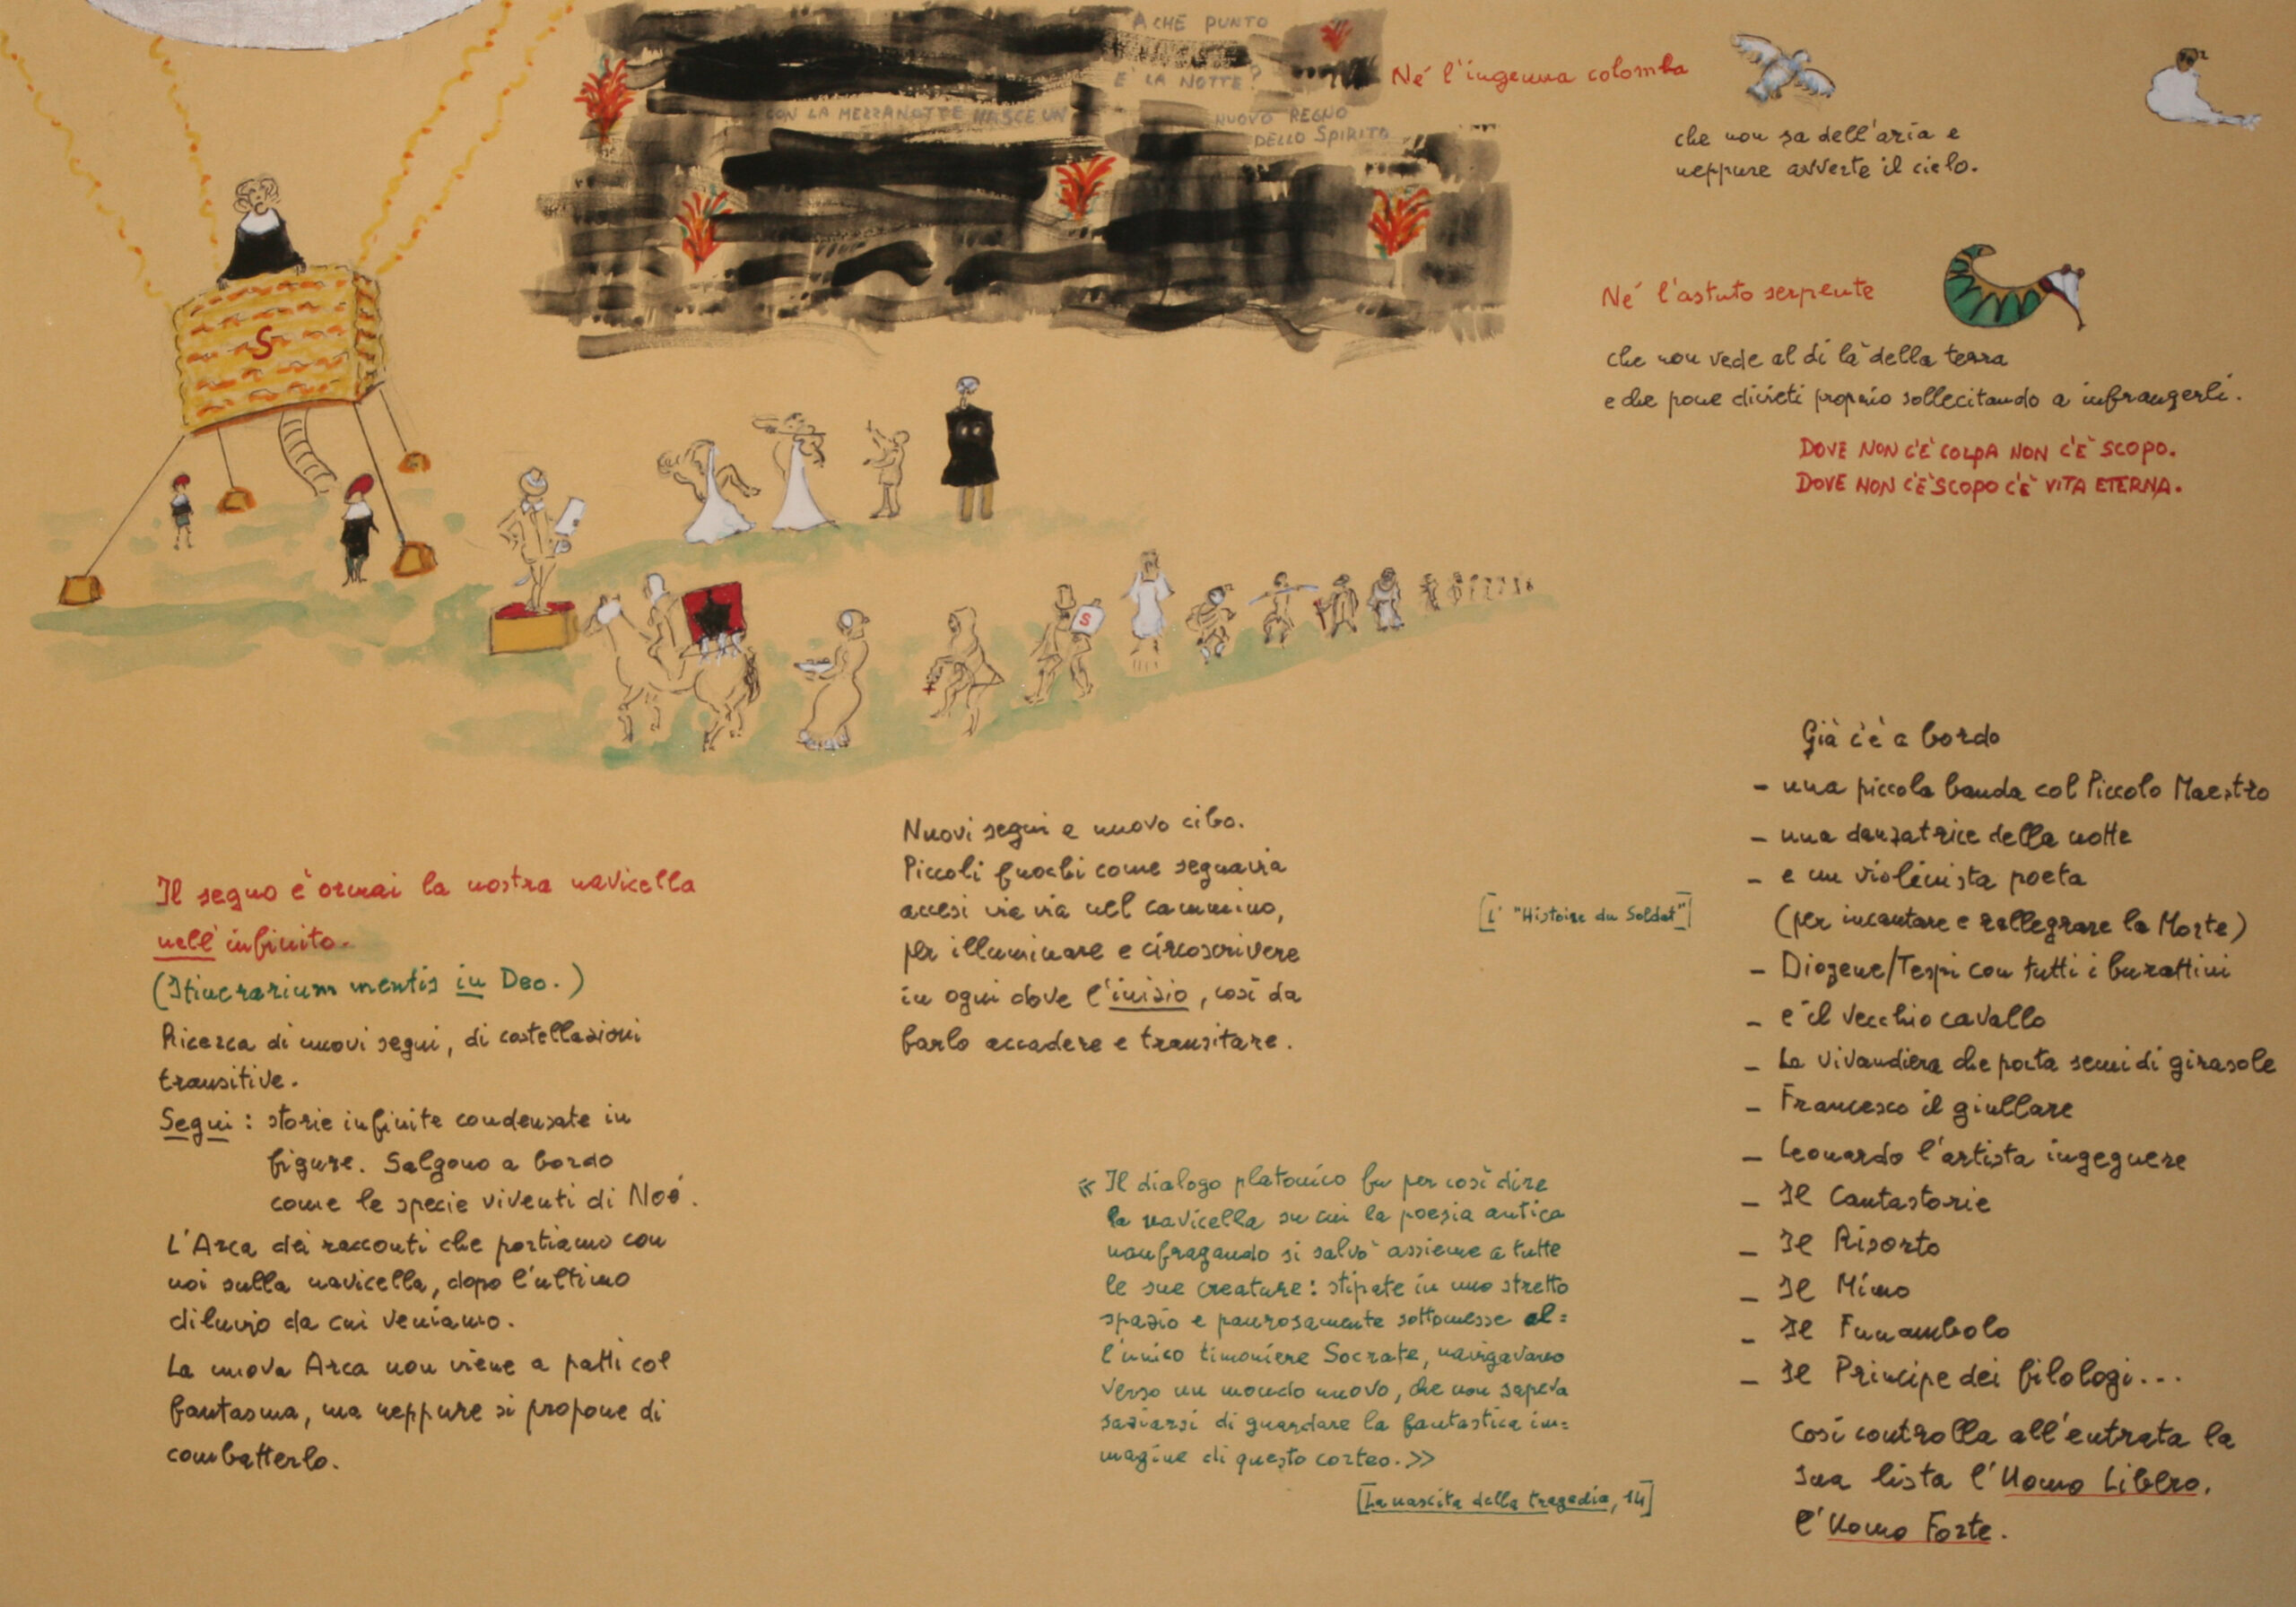 A CHE PUNTO
È LA NOTTE?
CON LA MEZZANOTTE NASCE UN
NUOVO REGNO
DELLO SPIRITO
Né l'ingenua colomba
che non sa dell'aria e
neppure avverte il cielo.
Né l'astuto serpente
che non vede al di là della terra
e che pone divieti proprio sollecitando a infrangerli.
DOVE NON C'È COLPA NON C'È SCOPO.
DOVE NON C'È SCOPO C'È VITA ETERNA.
S
S
Il segno è ormai la nostra navicella
nell'infinito.
(Itinerarium mentis in Deo.)
Ricerca di nuovi segni, di costellazioni
transitive.
Segni: storie infinite condensate in
figure. Salgono a bordo
come le specie viventi di Noè.
L'Arca dei racconti che portiamo con
noi sulla navicella, dopo l'ultimo
diluvio da cui veniamo.
La nuova Arca non viene a patti col
fantasma, ma neppure si propone di
combatterlo.
Nuovi segni e nuovo cibo.
Piccoli fuochi come segnavia
accesi via via nel cammino,
per illuminare e circoscrivere
in ogni dove l'inizio, così da
farlo accadere e transitare.
[L' "Histoire du Soldat"]
«Il dialogo platonico fu per così dire
la navicella su cui la poesia antica
naufragando si salvò assieme a tutte
le sue creature: stipate in uno stretto
spazio e paurosamente sottomesse al=
l'unico timoniere Socrate, navigavano
verso un mondo nuovo, che non sapeva
saziarsi di guardare la fantastica im=
magine di questo corteo.»
[La nascita della tragedia, 14]
Già c'è a bordo
- una piccola banda col Piccolo Maestro
- una danzatrice della notte
- e un violinista poeta
(per incantare e rallegrare la Morte)
- Diogene/Tespi con tutti i burattini
- e il vecchio cavallo
- La vivandiera che porta semi di girasole
- Francesco il giullare
- Leonardo l'artista ingegnere
- Il Cantastorie
- Il Risorto
- Il Mimo
- Il Funambolo
- Il Principe dei filologi...
Così controlla all'entrata la
sua lista l'Uomo Libero,
l'Uomo Forte.